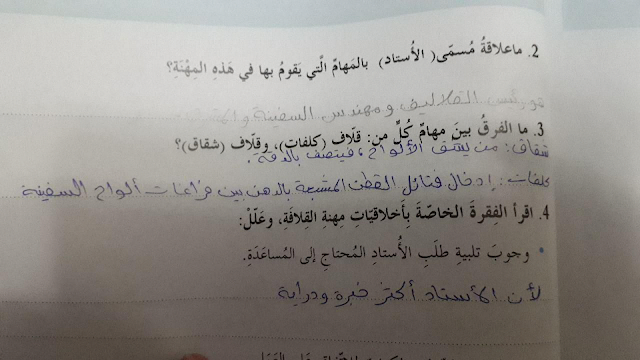 2. ما علاقةُ مُسمّى (الأُستاد) بالمَهامّ الَّتي يَقومُ بها في هَذهِ المِهْنَةِ؟
هو رئيس القلاليف ومهندس السفينة
3. ما الفرقُ بينَ مهامّ كُلٍّ من: قلّاف (كلفات)، وقلّاف (شقاق)؟
شقاق: من يشق الألواح، فيتصف بالدقة.
كلفات: إدخال فتائل القطن المشبعة بالدهن بين فراغات ألواح السفينة
4. اقرأ الفِقرةَ الخاصّةَ بِأخلاقيّاتِ مِهنةِ القِلافَةِ، وعَلّلْ:
• وجوبَ تلبيةِ طلَبِ الأُستادِ المُحتاجِ إلى المُساعَدَةِ.
لأن الأستاد أكثر خبرة ودراية